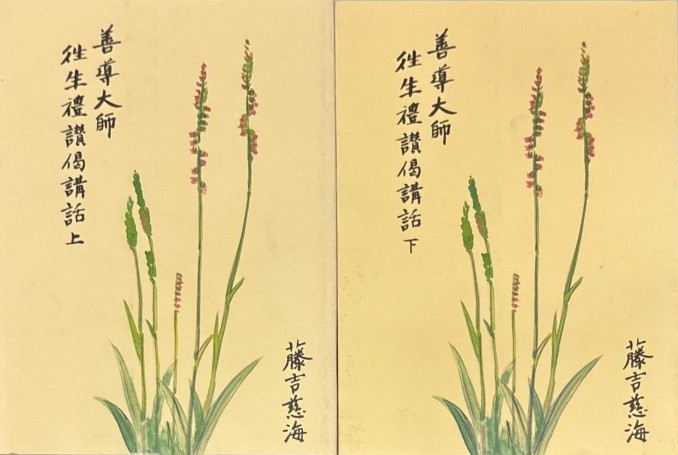 善導大師
徃生禮讃偈講話 上
藤吉慈海
善導大師
徃生禮讃偈講話 下
藤吉慈海